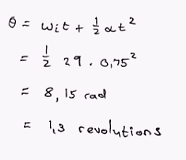 θ = wit + 1/2 αt²
= 1/2 29 . 0,75²
= 8,15 rad
= 1,3 revolutions